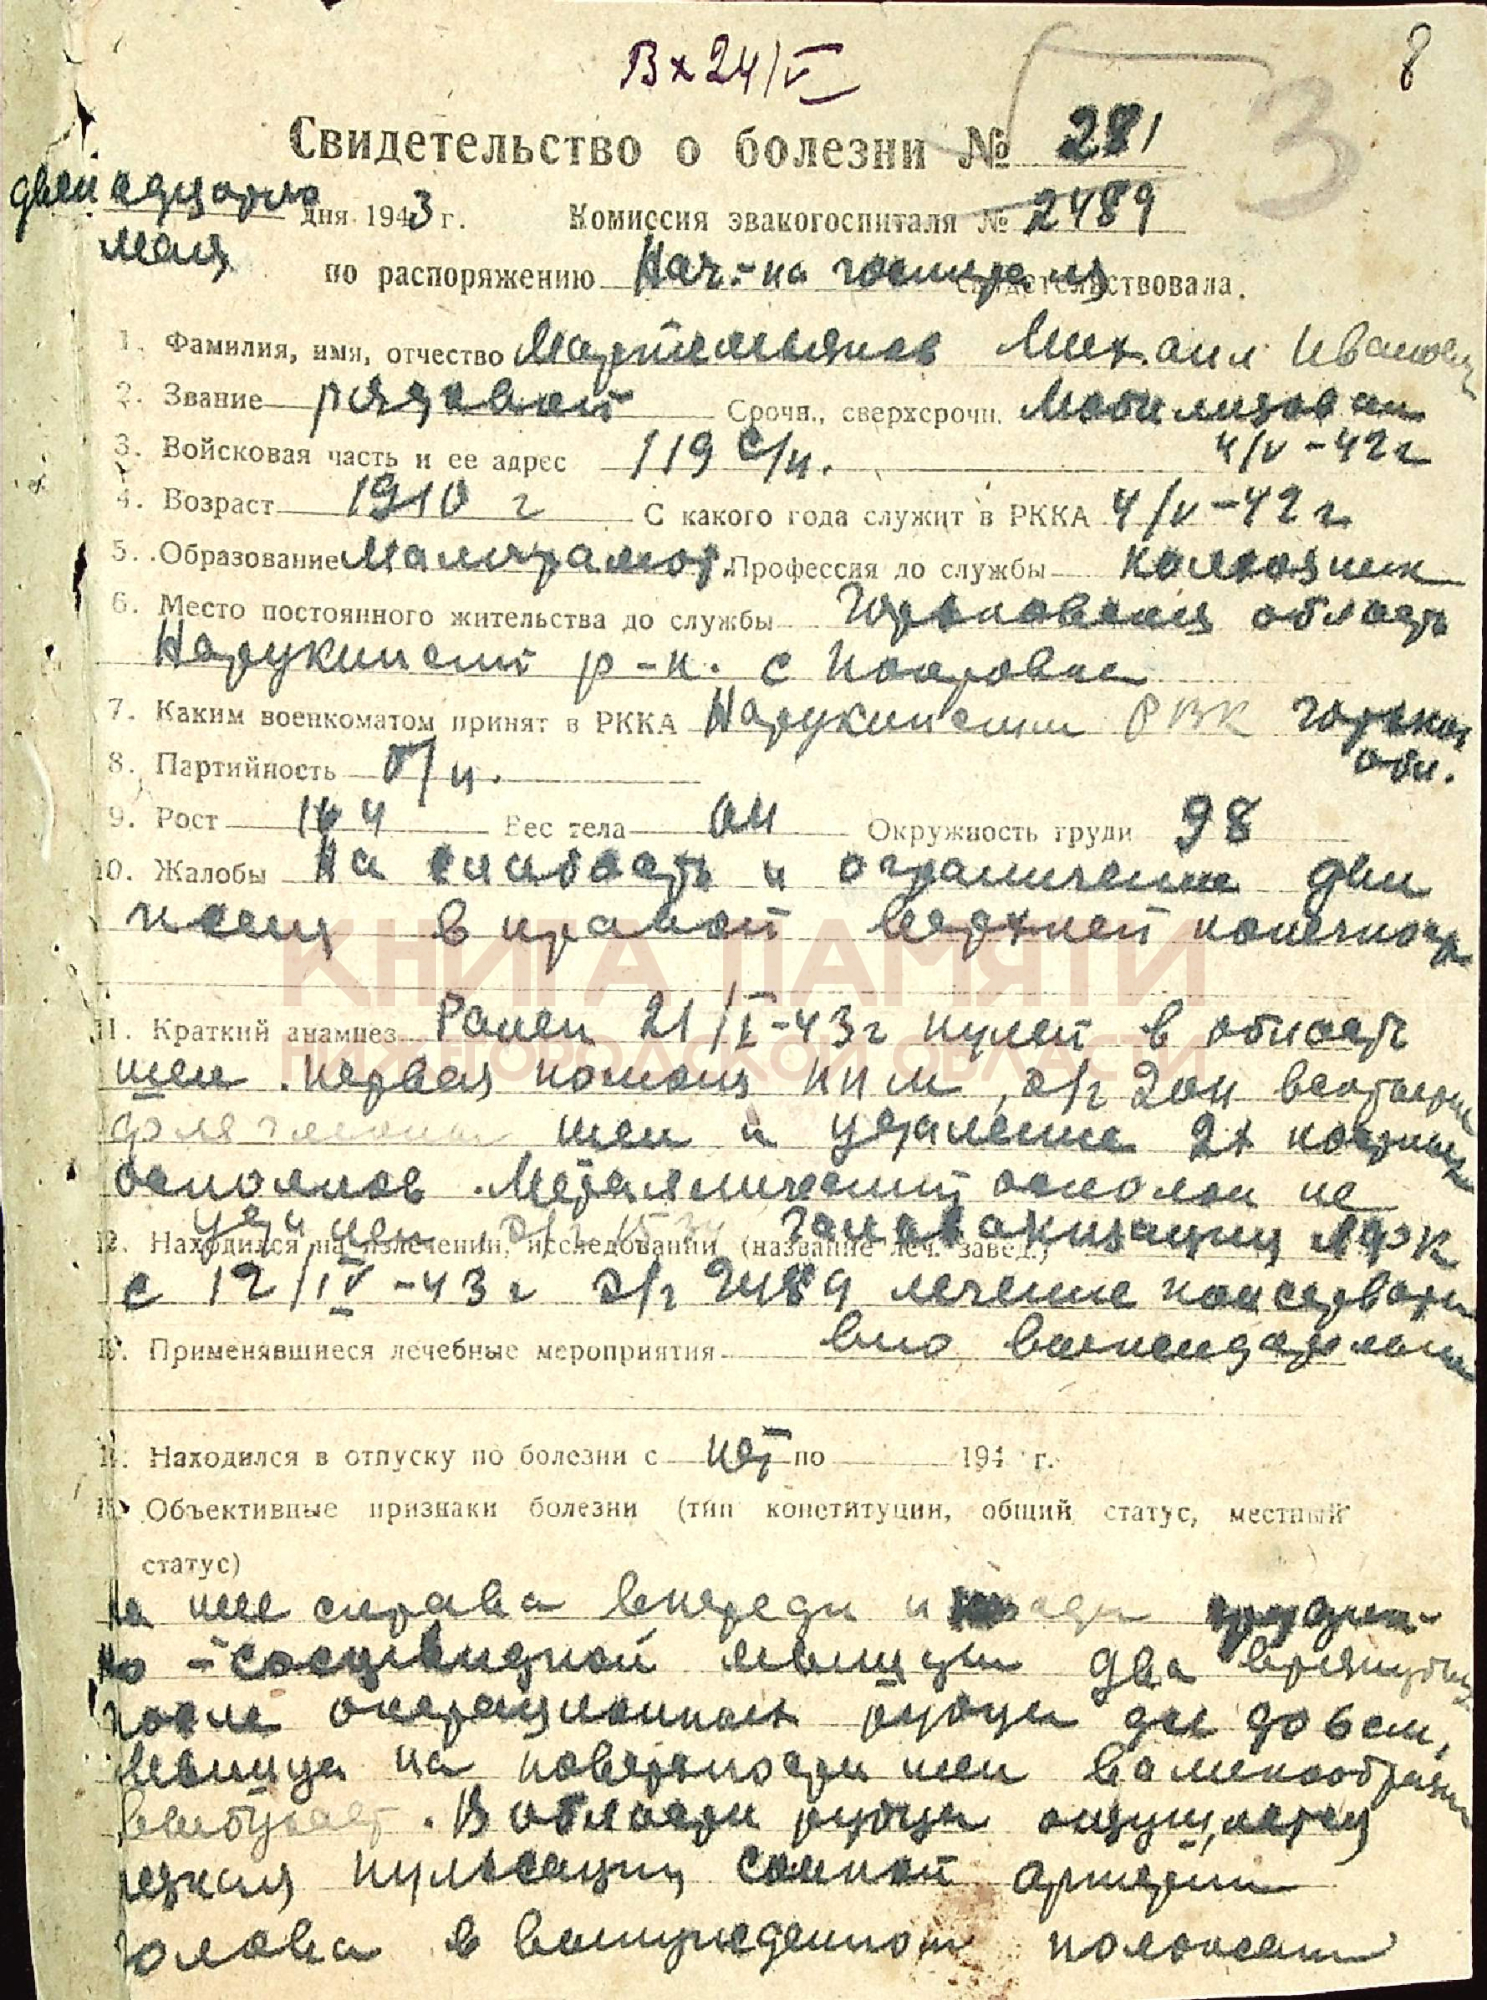 Вх 24/V
8
3
Свидетельство о болезни № 281
двенадцатого дня 1943 г. Комиссия эвакогоспиталя № 2489
мая
по распоряжению Нач-ка госпиталя свидетельствовала.
1. Фамилия, имя, отчество Мартемьянов Михаил Иванович
2. Звание рядовой Срочн., сверхсрочн. Мобилизован
4/V-42 г
3. Войсковая часть и ее адрес 119 с/п.
4. Возраст 1910 г С какого года служит в РККА 4/V-42 г
5. Образование Малограмот. Профессия до службы колхозник
6. Место постоянного жительства до службы Горьковская область
Нарукинский р-н. с Покровка
7. Каким военкоматом принят в РККА Нарукинским РВК Горьков
обл.
8. Партийность б/п.
9. Рост 164 Вес тела 64 Окружность груди 98
10. Жалобы На слабость и ограничение дви
жения в правой верхней конечности
КНИГА ПАМЯТИ
НИЖЕГОРОДСКОЙ ОБЛАСТИ
11. Краткий анамнез Ранен 21/I-43 г пулей в область
шеи. первая помощь ППМ, э/г вскрытие
флегмоны шеи и удаление 2х костных
осколков. Металлический осколок не
удален э/г
12. Находился на излечении, исследовании (название леч. завед.) гальванизация ЛФК
с 12/IV-43 г э/г 2489 лечение консервати
вно
13. Применявшиеся лечебные мероприятия
14. Находился в отпуску по болезни с нет по 194 г.
15. Объективные признаки болезни (тип конституции, общий статус, местный
статус)
на шее справа впереди и сзади грудин-
но-сосцевидной мышцы два втянутых
после операционных рубца до 6 см,
мышца на поверхности шеи валикообразно
выбухает. В области рубца ощущается
резкая пульсация сонной артерии
голова в вынужденном положении